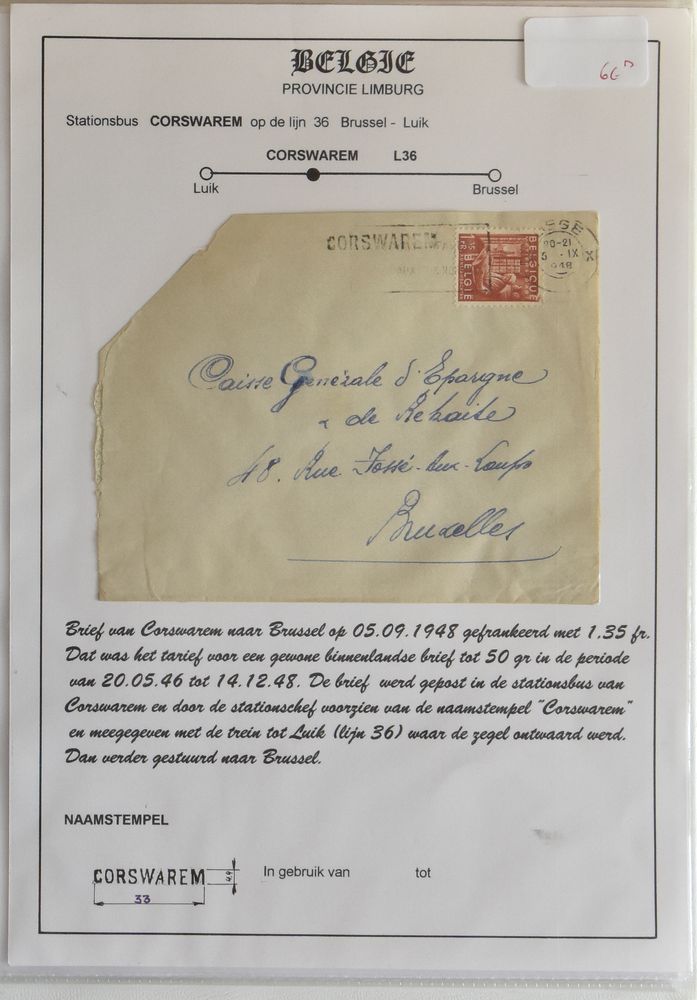 6G
BELGIE
PROVINCIE LIMBURG
Stationsbus CORSWAREM op de lijn 36 Brussel - Luik
CORSWAREM L36
Luik Brussel
CORSWAREM
1.35 FR BELGIE BELGIQUE
20-21
5 - IX
1948
X
Caisse Générale d'Epargne
de Retraite
48. Rue Fossé-aux-Loups
Bruxelles
Brief van Corswarem naar Brussel op 05.09.1948 gefrankeerd met 1.35 fr.
Dat was het tarief voor een gewone binnenlandse brief tot 50 gr in de periode
van 20.05.46 tot 14.12.48. De brief werd gepost in de stationsbus van
Corswarem en door de stationschef voorzien van de naamstempel "Corswarem"
en meegegeven met de trein tot Luik (lijn 36) waar de zegel ontwaard werd.
Dan verder gestuurd naar Brussel.
NAAMSTEMPEL
CORSWAREM 4,9 In gebruik van tot
33